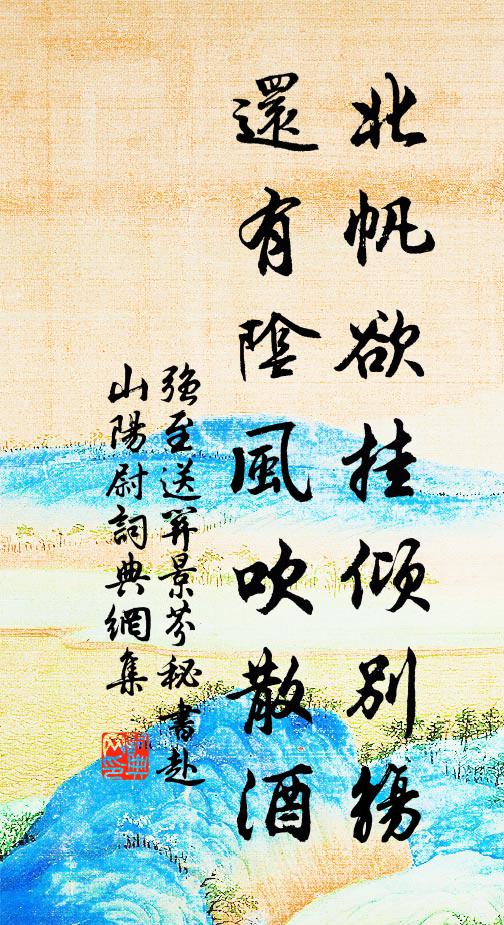 北帆欲挂倾别觞
還有陰風吹散酒
强至送羿景芬秘書赴
山陽尉詞典網集